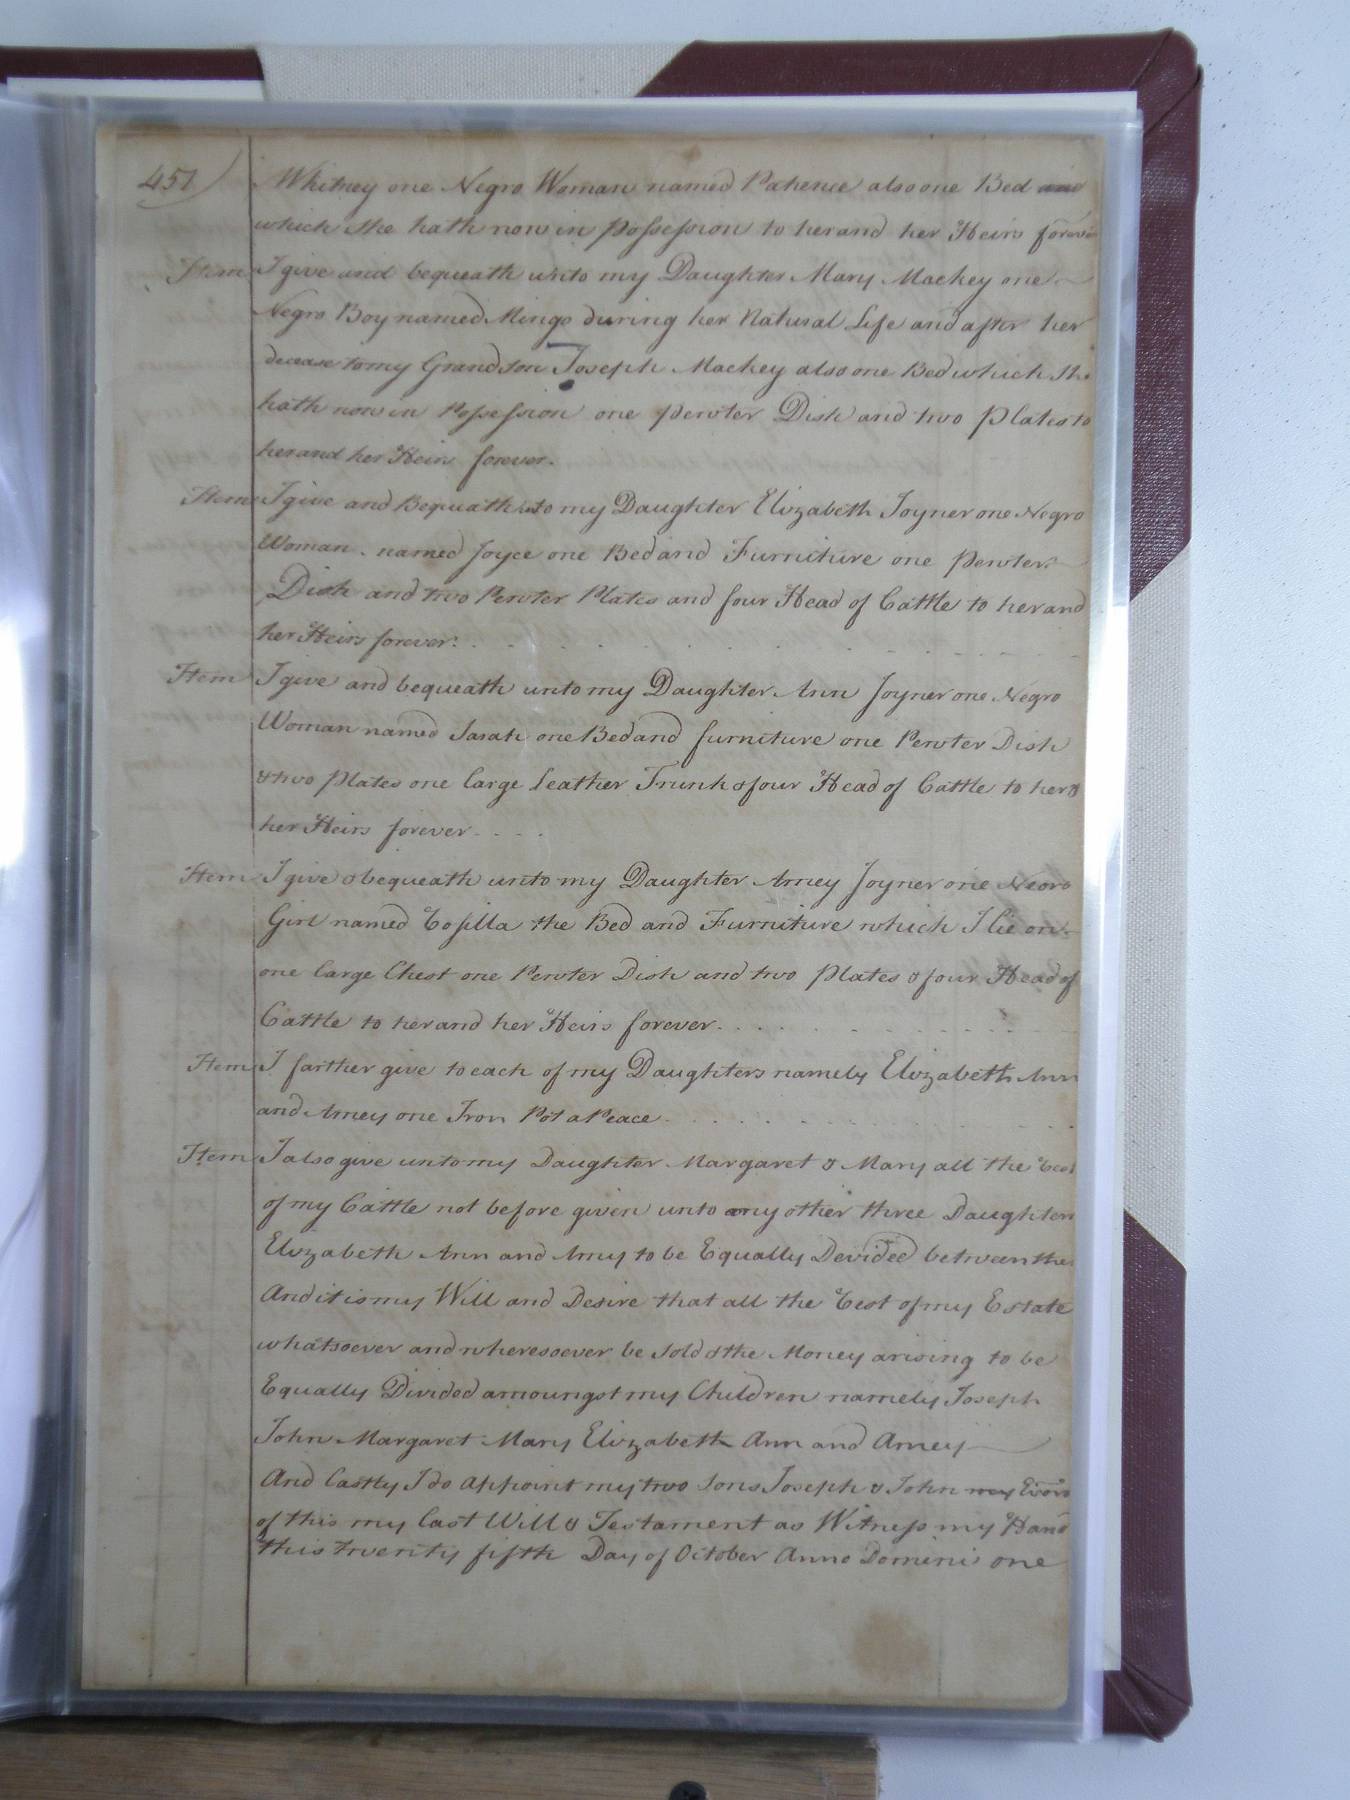 457
Whitney one Negro Woman named Patience also one Bed
which she hath now in Possession to her and her Heirs forever
Item I give and bequeath unto my Daughter Mary Mackey one
Negro Boy named Mingo during her Natural Life and after her
decease to my Grandson Joseph Mackey also one Bed which she
hath now in Possession one pewter Dish and two Plates to
her and her Heirs forever.
Item I give and Bequeath unto my Daughter Elizabeth Joyner one Negro
Woman named Joyce one Bed and Furniture one Pewter
Dish and two Pewter Plates and four Head of Cattle to her and
her Heirs forever.
Item I give and bequeath unto my Daughter Ann Joyner one Negro
Woman named Sarah one Bed and furniture one Pewter Dish
& two Plates one large Leather Trunk & four Head of Cattle to her &
her Heirs forever
Item I give & bequeath unto my Daughter Amey Joyner one Negro
Girl named the Bed and Furniture which I lie on
one large Chest one Pewter Dish and two Plates & four Head of
Cattle to her and her Heirs forever.
Item I farther give to each of my Daughters namely Elizabeth Ann
and Amey one Iron Pot a Peace
Item I also give unto my Daughter Margaret & Mary all the
of my Cattle not before given unto my other three Daughters
Elizabeth Ann and Amy to be Equally Devided between the
And it is my Will and Desire that all the Rest of my Estate
whatsoever and wheresoever be sold & the Money arising to be
Equally Divided amoungst my Children namely Joseph
John Margaret Mary Elizabeth Ann and Amey
And Lastly I do appoint my two Sons Joseph & John my Exors
of this my last Will & Testament as Witness my Hand
this twenty fifth Day of October Anno Domini one